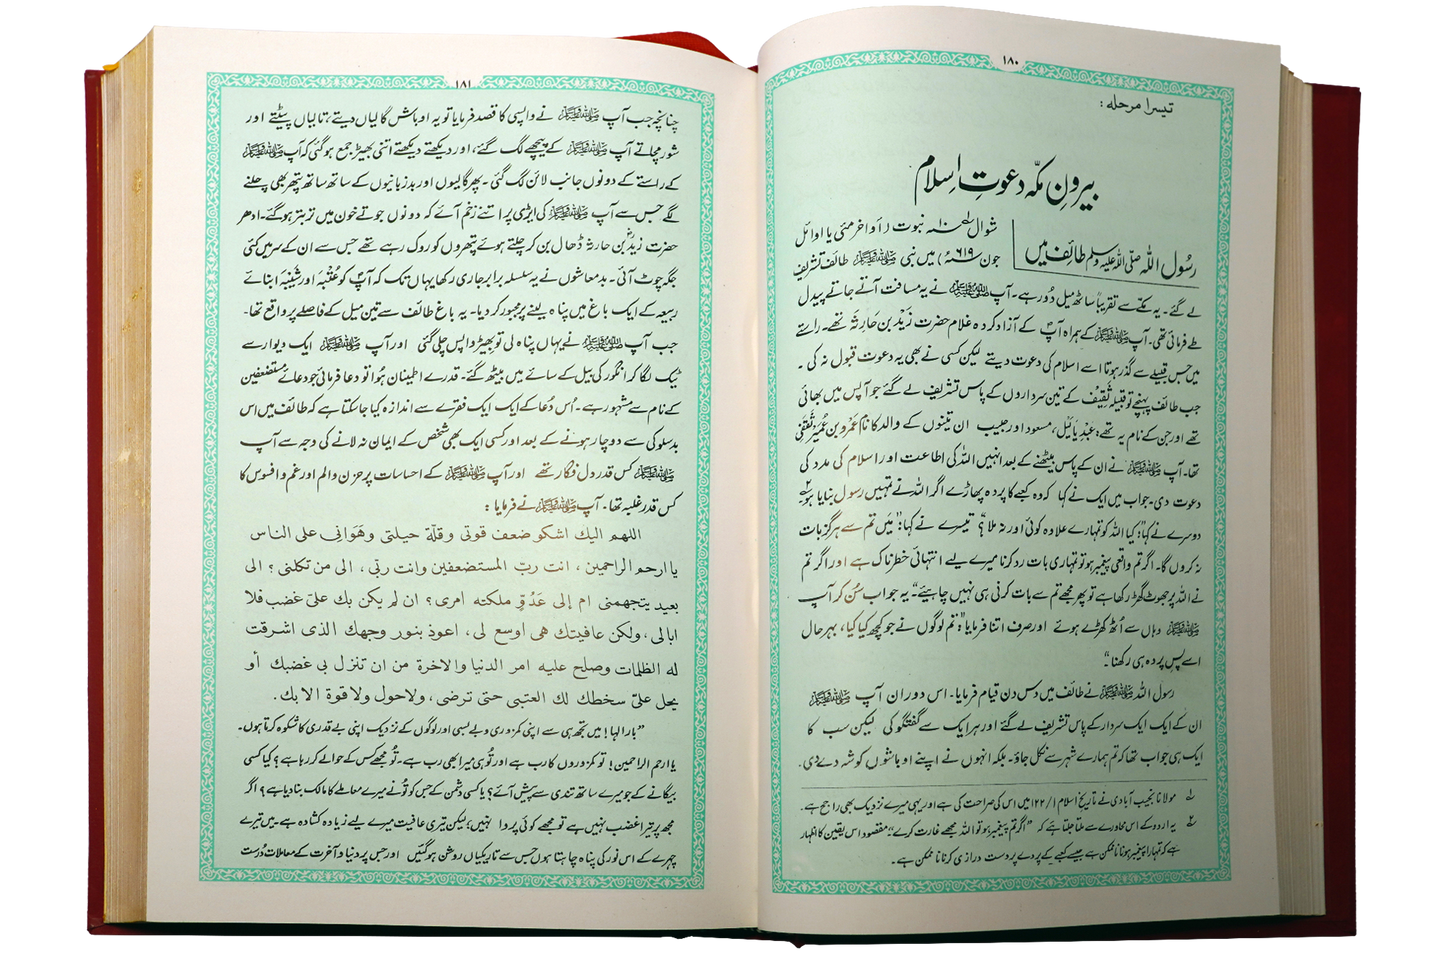 ۱۸۰
تیسرا مرحلہ :
بیرونِ مکّہ دعوتِ اسلام
رسُول اللہ صلی اللہ علیہ وسلم طائف میں
شوال سنہ ۱۰ نبوت (اواخر مئی یا اوائل
جون ۶۱۹ء) میں نبی ﷺ طائف تشریف
لے گئے۔ یہ مکّے سے تقریباً ساٹھ میل دُور ہے۔ آپ ﷺ نے یہ مسافت آتے جاتے پیدل
طے فرمائی تھی۔ آپ ﷺ کے ہمراہ آپؐ کے آزاد کردہ غلام حضرت زیدؓ بن حارثہ تھے۔ راستے
میں جس قبیلے سے گذر ہوتا اسے اسلام کی دعوت دیتے لیکن کسی نے بھی یہ دعوت قبول نہ کی ۔
جب طائف پہنچے تو قبیلہ ثقیف کے تین سرداروں کے پاس تشریف لے گئے جو آپس میں بھائی
تھے اور جن کے نام یہ تھے : عبدیالیل، مسعود اور حبیب ان تینوں کے والد کا نام عَمرو بن عُمیر ثقفی
تھا۔ آپ ﷺ نے ان کے پاس بیٹھنے کے بعد انہیں اللہ کی اطاعت اور اسلام کی مدد کی
دعوت دی۔ جواب میں ایک نے کہا کہ وہ کعبے کا پردہ پھاڑے اگر اللہ نے تمہیں رسول بنایا ہو۔
دوسرے نے کہا: کیا اللہ کو تمہارے علاوہ کوئی اور نہ ملا؟ تیسرے نے کہا: ”میں تم سے ہرگز بات
نہ کروں گا۔ اگر تم واقعی پیغمبر ہو تو تمہاری بات رد کرنا میرے لیے انتہائی خطرناک ہے اور اگر تم
نے اللہ پر جھوٹ گھڑ رکھا ہے تو پھر مجھے تم سے بات کرنی ہی نہیں چاہیئے“ یہ جواب سُن کر آپ
ﷺ وہاں سے اُٹھ کھڑے ہوئے اور صرف اتنا فرمایا: ”تم لوگوں نے جو کچھ کیا کیا، بہرحال
اسے پس پردہ ہی رکھنا“۔
رسول اللہ ﷺ نے طائف میں دس دن قیام فرمایا۔ اس دوران آپ ﷺ
ان کے ایک ایک سردار کے پاس تشریف لے گئے اور ہر ایک سے گفتگو کی لیکن سب کا
ایک ہی جواب تھا کہ تم ہمارے شہر سے نکل جاؤ۔ بلکہ انہوں نے اپنے اوباشوں کو شہ دے دی۔
۱؎ مولانا نجیب آبادی نے تاریخ اسلام ۱/۱۲۲ میں اس کی صراحت کی ہے اور یہی میرے نزدیک بھی راجح ہے۔
۲؎ یہ اردو کے اس محاورے سے ملتا جلتا ہے کہ ”اگر تم پیغمبر ہو تو اللہ مجھے غارت کرے“ مقصود اس یقین کا اظہار
ہے کہ تمہارا پیغمبر ہونا ناممکن ہے جیسے کعبے کے پردے پر دست درازی کرنا ناممکن ہے۔
۱۸۱
چنانچہ جب آپ ﷺ نے واپسی کا قصد فرمایا تو یہ اوباش گالیاں دیتے، تالیاں پیٹتے اور
شور مچاتے آپ ﷺ کے پیچھے لگ گئے، اور دیکھتے دیکھتے اتنی بھیڑ جمع ہو گئی کہ آپ ﷺ
کے راستے کے دونوں جانب لائن لگ گئی۔ پھر گالیوں اور بد زبانیوں کے ساتھ ساتھ پتھر بھی چلنے
لگے جس سے آپ ﷺ کی ایڑی پر اتنے زخم آئے کہ دونوں جوتے خون میں تربتر ہو گئے۔ ادھر
حضرت زیدؓ بن حارثہ ڈھال بن کر چلتے ہوئے پتھروں کو روک رہے تھے جس سے ان کے سر میں کئی
جگہ چوٹ آئی۔ بدمعاشوں نے یہ سلسلہ برابر جاری رکھا یہاں تک کہ آپؐ کو عُتْبہ اور شَیْبَہ ابنائے
ربیعہ کے ایک باغ میں پناہ لینے پر مجبور کر دیا۔ یہ باغ طائف سے تین میل کے فاصلے پر واقع تھا۔
جب آپ ﷺ نے یہاں پناہ لی تو بھیڑ واپس چلی گئی اور آپ ﷺ ایک دیوار سے
ٹیک لگا کر انگور کی بیل کے سائے میں بیٹھ گئے۔ قدرے اطمینان ہُوا تو دعا فرمائی جو دعائے مستضعفین
کے نام سے مشہور ہے۔ اُس دُعا کے ایک ایک فقرے سے اندازہ کیا جا سکتا ہے کہ طائف میں اس
بدسلوکی سے دوچار ہونے کے بعد اور کسی ایک بھی شخص کے ایمان نہ لانے کی وجہ سے آپ
ﷺ کس قدر دل فگار تھے اور آپ ﷺ کے احساسات پر حزن والم اور غم و افسوس کا
کس قدر غلبہ تھا۔ آپ ﷺ نے فرمایا :
اللهم اليك اشكو ضعف قوتى وقلّة حيلتى وهَوانى على الناس
يا ارحم الراحمين ، انت ربّ المستضعفين وانت ربّى، الى من تكلنى؟ الى
بعيد يتجهمنى ام إلى عَدُوٍّ ملكته امرى؟ ان لم يكن بك علىّ غضب فلا
ابالى، ولكن عافيتك هى اوسع لى، اعوذ بنور وجهك الذى اشرقت
له الظلمات وصلح عليه امر الدنيا والاخرة من ان تنزل بى غضبك أو
يحل علىّ سخطك لك العتبى حتى ترضى، ولاحول ولاقوة الا بك .
”بارالہا! میں تجھ ہی سے اپنی کمزوری و بے بسی اور لوگوں کے نزدیک اپنی بے قدری کا شکوہ کرتا ہوں۔
یا ارحم الراحمین! تو کمزوروں کا رب ہے اور تُو ہی میرا بھی رب ہے۔ تُو مجھے کس کے حوالے کر رہا ہے؟ کیا کسی
بیگانے کے جو میرے ساتھ تندی سے پیش آئے؟ یا کسی دشمن کے جس کو تُو نے میرے معاملے کا مالک بنا دیا ہے؟ اگر
مجھ پر تیرا غضب نہیں ہے تو مجھے کوئی پروا نہیں؛ لیکن تیری عافیت میرے لیے زیادہ کشادہ ہے۔ میں تیرے
چہرے کے اس نور کی پناہ چاہتا ہوں جس سے تاریکیاں روشن ہو گئیں اور جس پر دنیا و آخرت کے معاملات دُرست